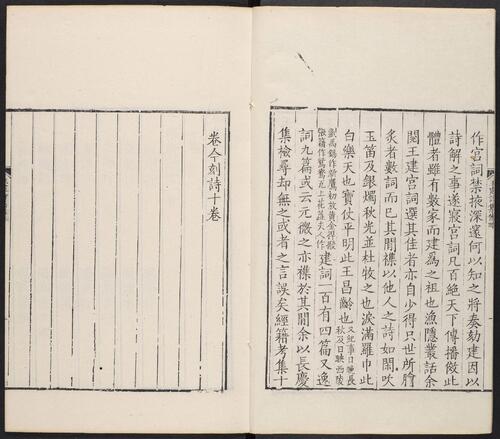 作宮詞禁掖深邃何以知之將奏劾建因以
詩解之事遂寢宮詞凡百絕天下傳播倣此
體者雖有數家而建為之祖也漁隱叢話余
閱王建宮詞選其佳者亦自少得只世所膾
炙者數詞而已其閒襍以他人之詩如閒吹
玉笛及銀燭秋光並杜牧之也淚滿羅巾此
白樂天也寶仗平明此王昌齡也
建詞一百有四篇又逸
詞九篇或云元微之亦襍於其閒余以長慶
集檢尋却無之或者之言誤矣經籍考集十
卷今刻詩十卷